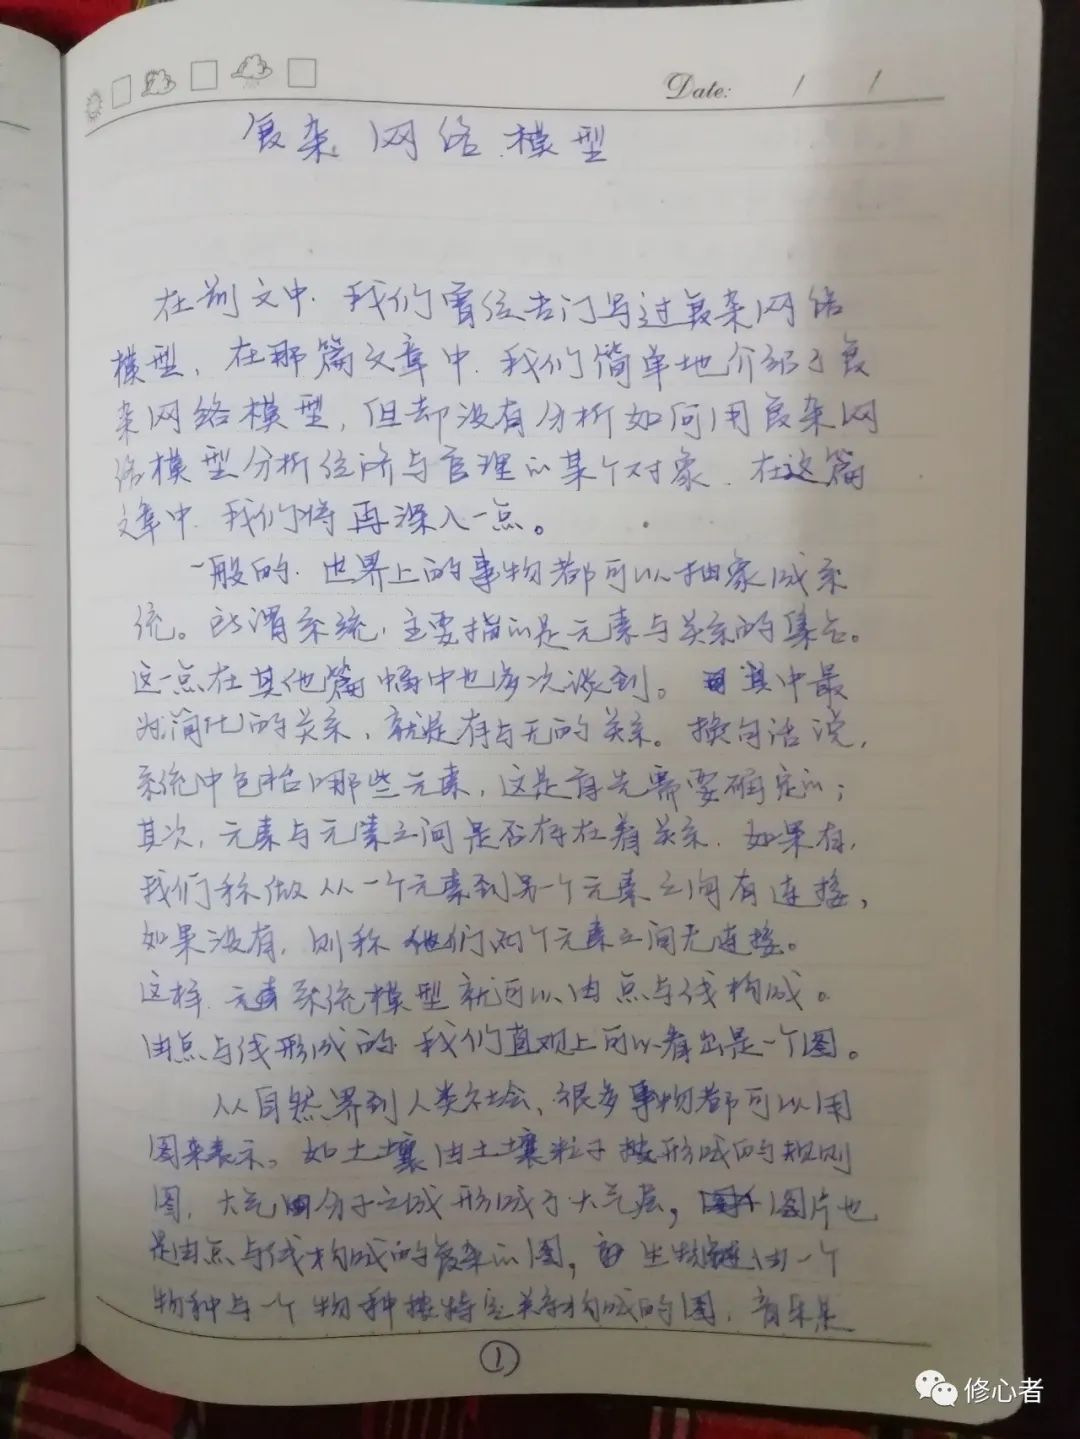 Date: / /
复杂网络模型
在前文中,我们曾经专门写过复杂网络
模型,在那篇文章中,我们简单地介绍了复
杂网络模型,但却没有分析如何用复杂网
络模型分析经济与管理的某个对象,在这篇
文章中,我们将再深入一点。
一般的,世界上的事物都可以抽象成系
统。所谓系统,主要指的是元素与关系的集合。
这一点在其他篇幅中也多次谈到。其中最
为简化的关系,就是存与无的关系。换句话说,
系统中包括哪些元素,这是首先需要确定的;
其次,元素与元素之间是否存在着关系,如果有,
我们称做从一个元素到另一个元素之间有连接,
如果没有,则称他们两个元素之间无连接。
这样,元素系统模型就可以由点与线构成。
由点与线形成的,我们直观上可以看出是一个图。
从自然界到人类社会,很多事物都可以用
图来表示。如土壤由土壤粒子按形成的规则
图,大气由分子形成了大气层,图片也
是由点与线构成的复杂的图,生物链由一个
物种与一个物种按特定关系构成的图,音乐是
①
修心者